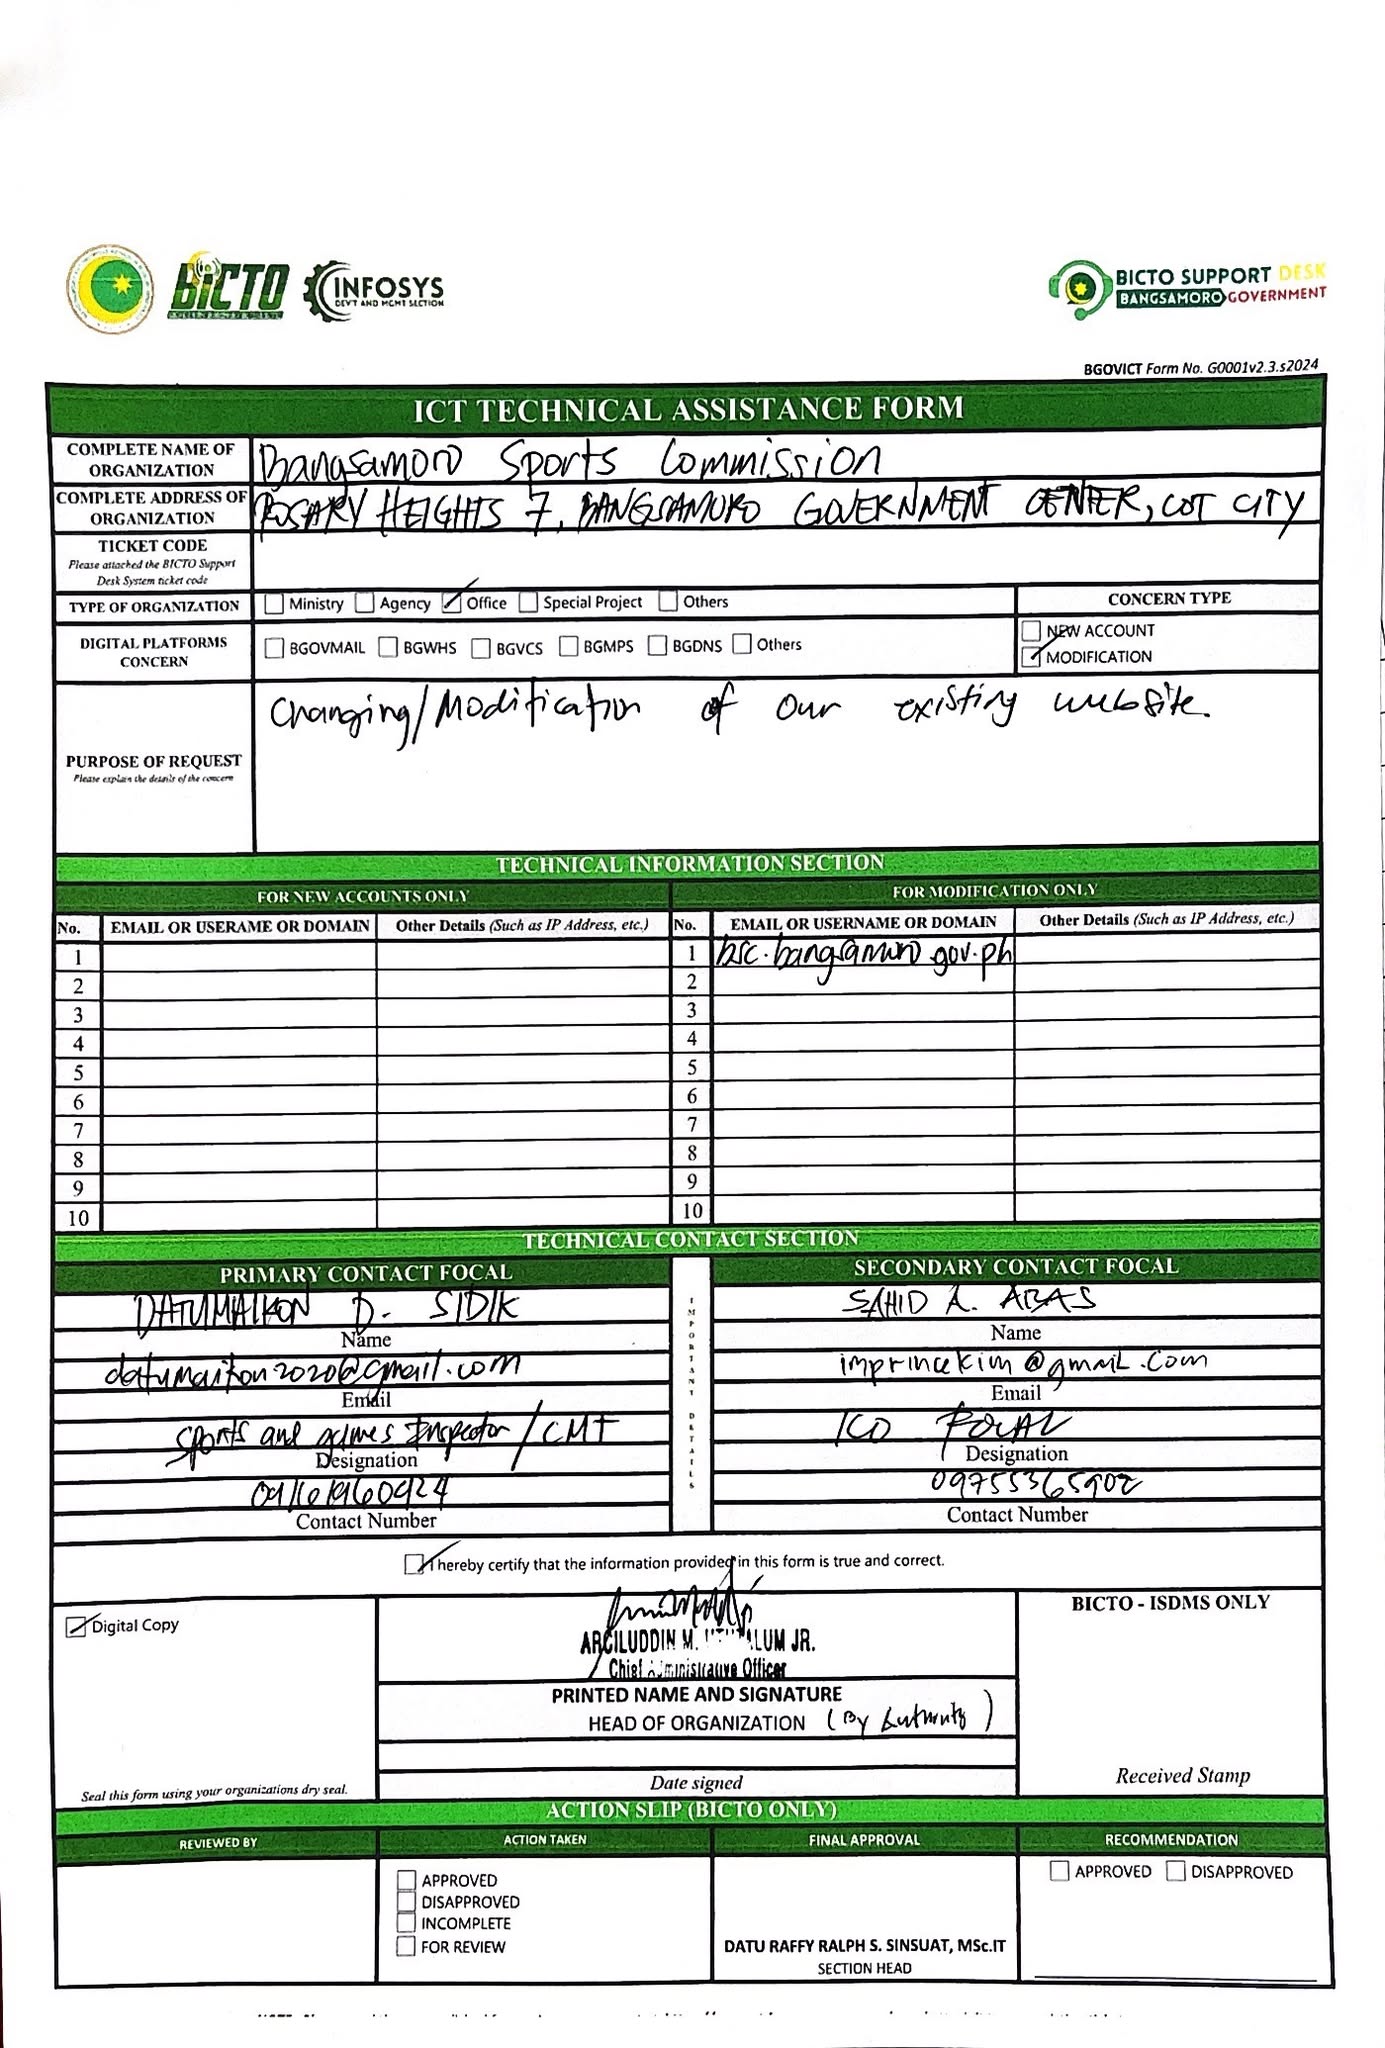 BICTO
INFOSYS
DEV'T AND MGMT SECTION
BICTO SUPPORT DESK
BANGSAMORO GOVERNMENT
BGOVICT Form No. G0001v2.3.s2024
ICT TECHNICAL ASSISTANCE FORM
COMPLETE NAME OF ORGANIZATION Bangsamoro Sports Commission
COMPLETE ADDRESS OF ORGANIZATION ROSARY HEIGHTS 7, BANGSAMORO GOVERNMENT CENTER, COT CITY
TICKET CODE
Please attached the BICTO Support
Desk System ticket code
TYPE OF ORGANIZATION Ministry Agency Office Special Project Others
CONCERN TYPE
NEW ACCOUNT
MODIFICATION
DIGITAL PLATFORMS CONCERN BGOVMAIL BGWHS BGVCS BGMPS BGDNS Others
PURPOSE OF REQUEST
Please explain the details of the concern
Changing/Modification of our existing website.
TECHNICAL INFORMATION SECTION
FOR NEW ACCOUNTS ONLY FOR MODIFICATION ONLY
No. EMAIL OR USERAME OR DOMAIN Other Details (Such as IP Address, etc.) No. EMAIL OR USERNAME OR DOMAIN Other Details (Such as IP Address, etc.)
1 1 bsc.bangsamoro.gov.ph
2 2
3 3
4 4
5 5
6 6
7 7
8 8
9 9
10 10
TECHNICAL CONTACT SECTION
PRIMARY CONTACT FOCAL
DATUMAIKON D. SIDIK
Name
datumaikon2020@gmail.com
Email
Sports and games Inspector / CMT
Designation
Contact Number
IMPORTANT DETAILS
SECONDARY CONTACT FOCAL
SAHID A. ABAS
Name
imprincekim@gmail.com
Email
FOCAL
Designation
09755365902
Contact Number
I hereby certify that the information provided in this form is true and correct.
Digital Copy
Seal this form using your organizations dry seal.
ARCILUDDIN M. JR.
Chief Administrative Officer
PRINTED NAME AND SIGNATURE
HEAD OF ORGANIZATION (By Authority)
Date signed
BICTO - ISDMS ONLY
Received Stamp
ACTION SLIP (BICTO ONLY)
REVIEWED BY ACTION TAKEN FINAL APPROVAL RECOMMENDATION
APPROVED
DISAPPROVED
INCOMPLETE
FOR REVIEW
DATU RAFFY RALPH S. SINSUAT, MSc.IT
SECTION HEAD
APPROVED DISAPPROVED